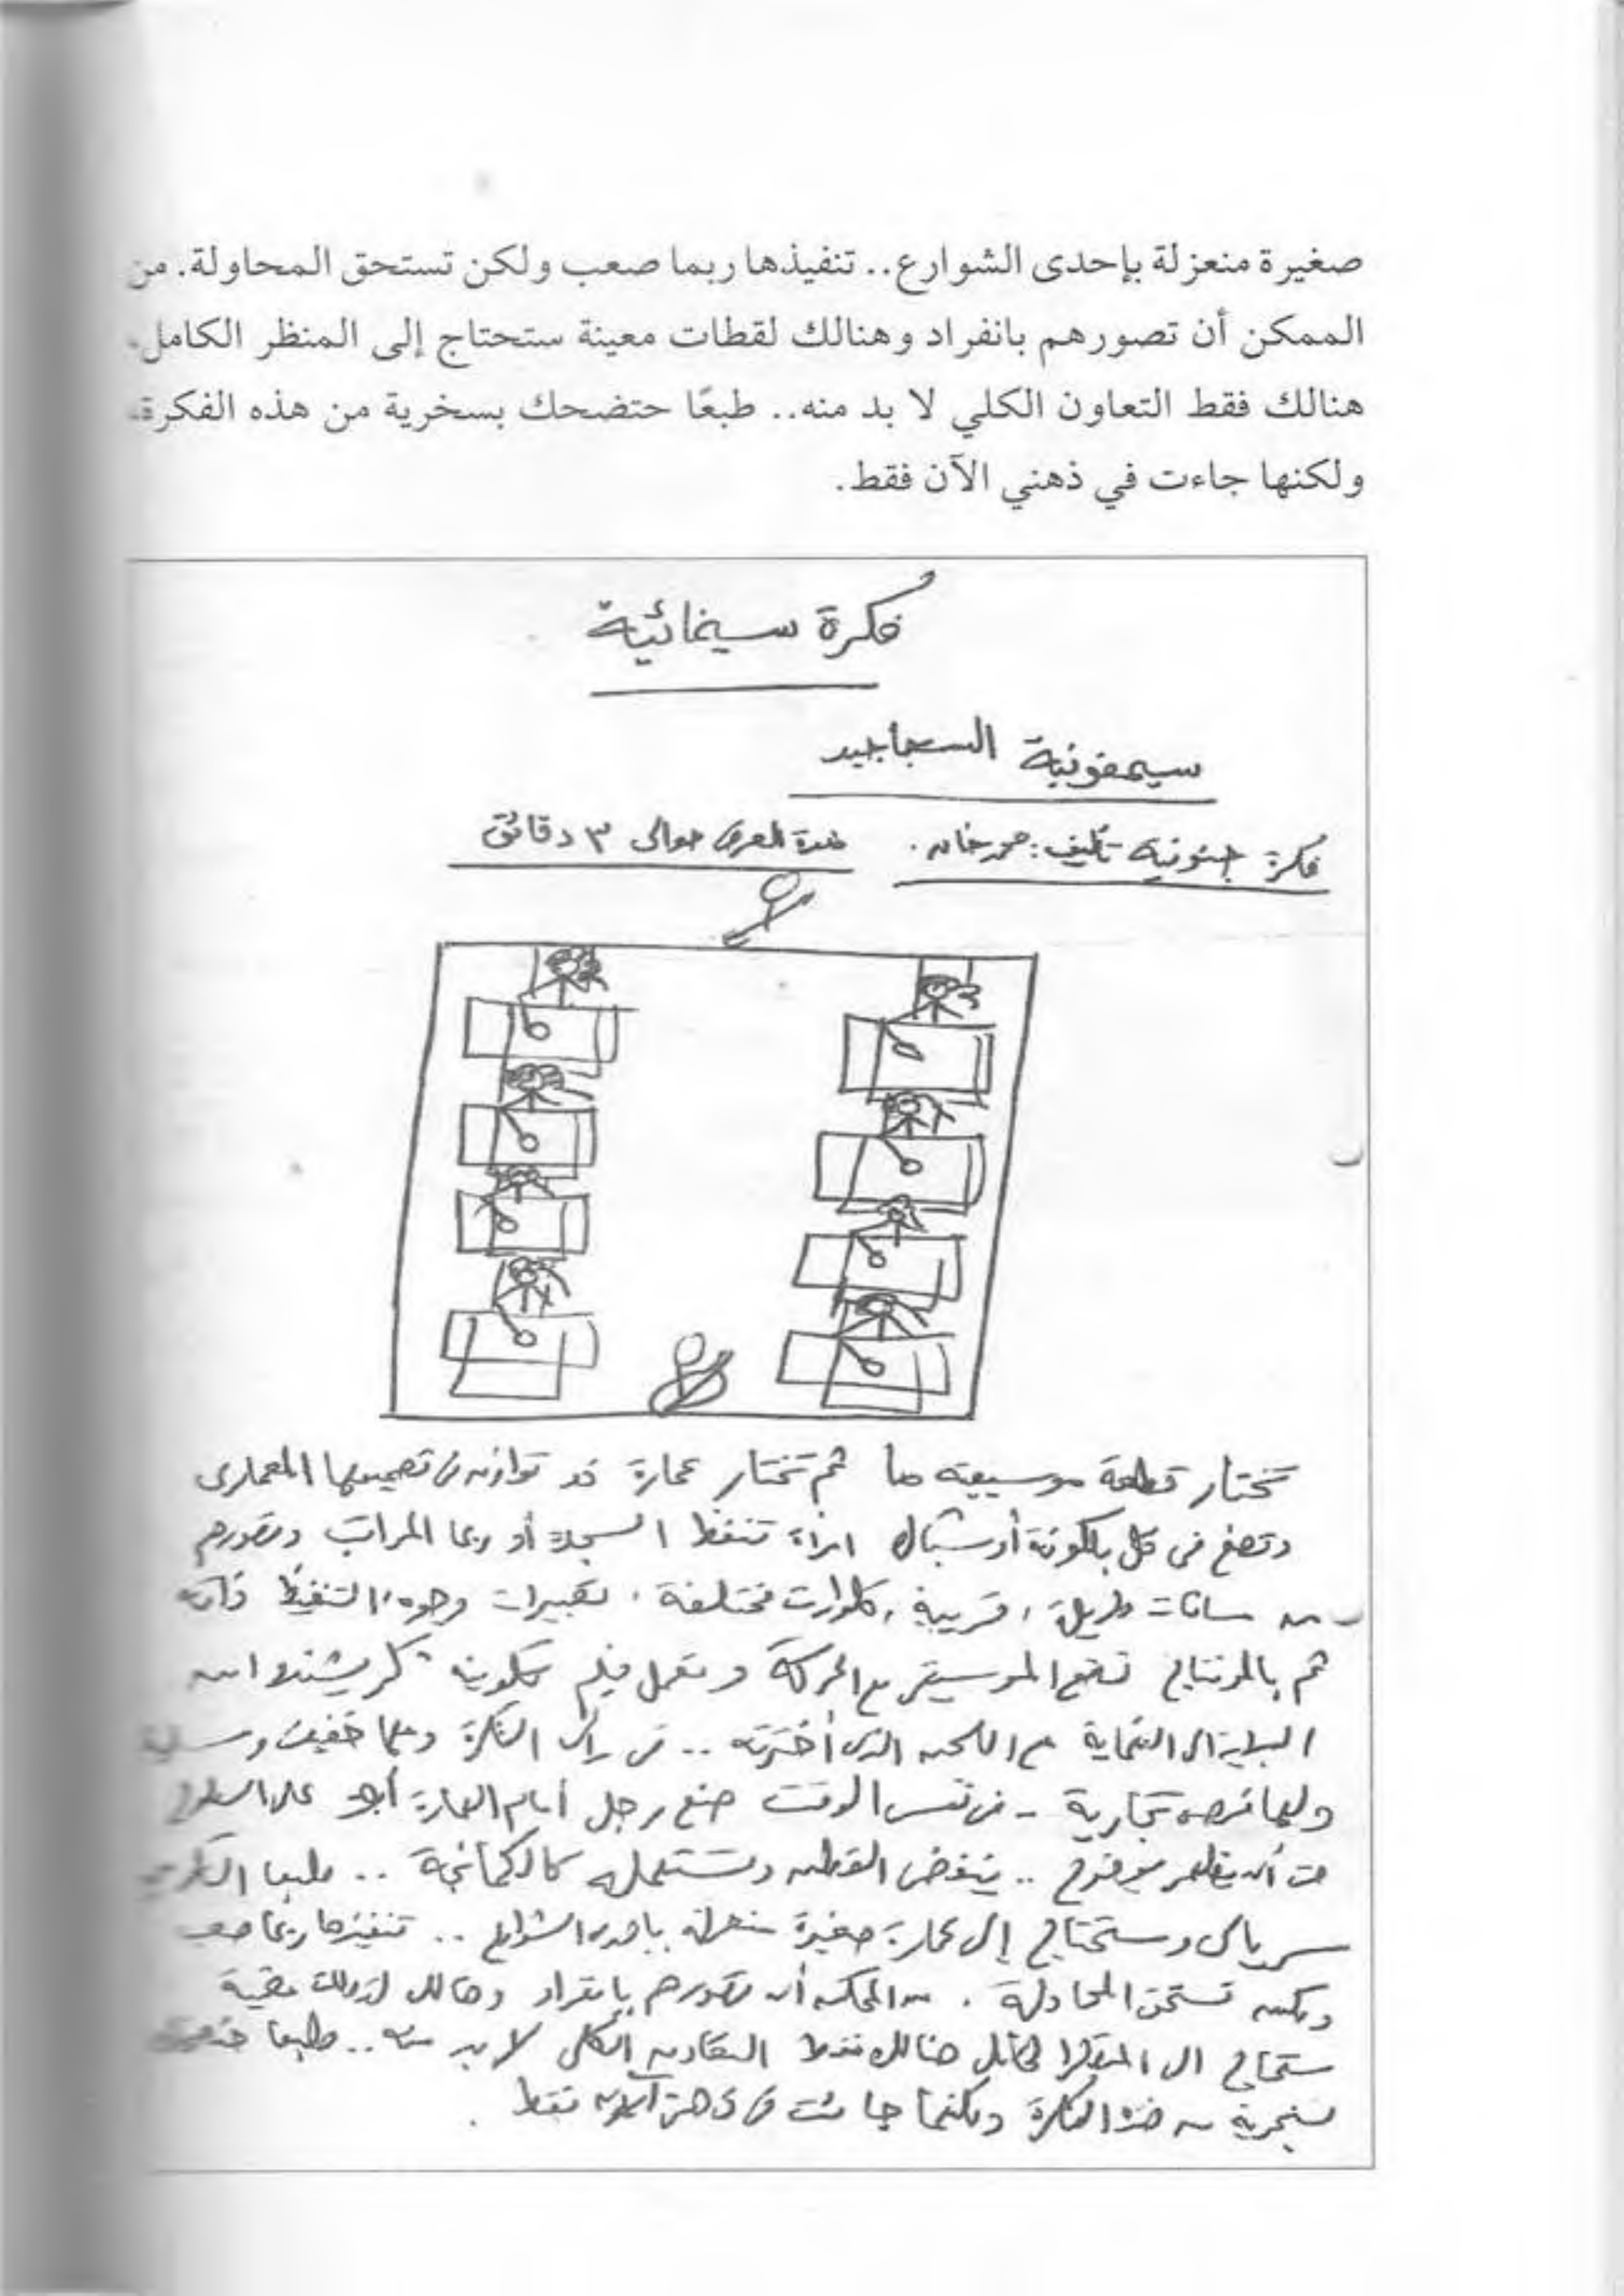 صغيرة منعزلة بإحدى الشوارع.. تنفيذها ربما صعب ولكن تستحق المحاولة. من
الممكن أن تصورهم بانفراد وهنالك لقطات معينة ستحتاج إلى المنظر الكامل،
هنالك فقط التعاون الكلي لا بد منه.. طبعًا حتضحك بسخرية من هذه الفكرة،
ولكنها جاءت في ذهني الآن فقط.
فكرة سينمائية
سيمفونية السجاجيد
فكرة جنونية تأليف: محمد خان.
مدة العرض حوالى ٣ دقائق
تختار قطعة موسيقية ما ثم تختار عمارة ذو توازن فى تصميمها المعمارى
وتضع فى كل بلكونة أو شباك امرأة تنفظ السجاد أو ربما المراتب وتصورهم
من مسافات طويلة، قريبة، كلوزات مختلفة، تعبيرات وجوه، التنفيظ ذاته
ثم بالمونتاج تضع الموسيقى مع الحركة وتعمل فيلم يكون من
البداية الى النهاية مع اللحن الذى أخترته .. فى رأى الفكرة دمها خفيف ومسلية
ولها فرص تجارية - فى نفس الوقت ضع رجل أمام العمارة أو على السطوح
ينفض القطن وتستعمله كالكمانجة .. طبعا
سريالى وستحتاج إلى عمارة صغيرة منعزلة بإحدى الشوارع .. تنفيذها ربما صعب
ولكن تستحق المحاولة . من الممكن أن تصورهم بانفراد وهنالك لقطات معينة
ستحتاج الى المنظر الكامل هنالك فقط التعاون الكلى لا بد منه .. طبعا حتضحك
بسخرية من هذه الفكرة ولكنها جائت فى ذهنى الآن فقط .